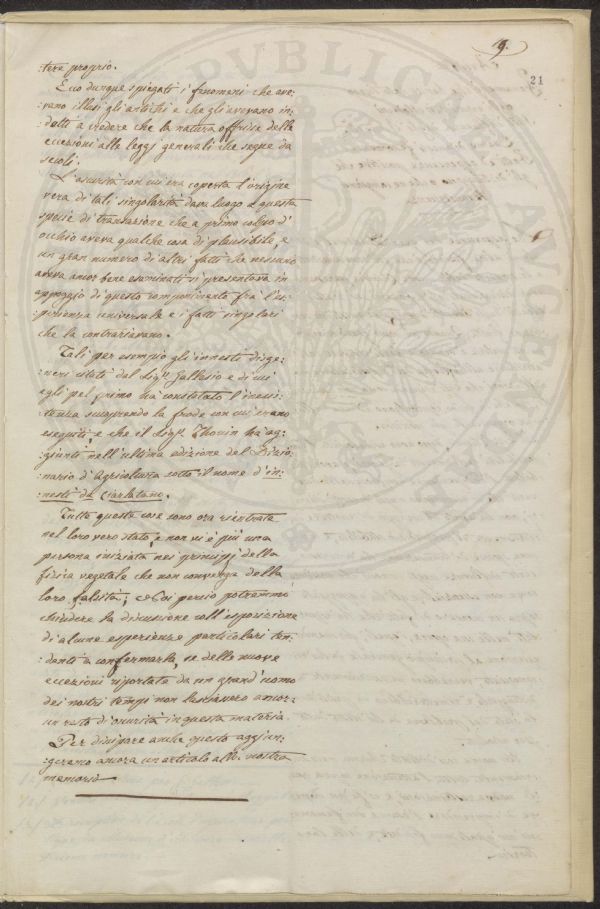 19.
21
:tere proprio.
Ecco dunque spiegati i fenomeni che ave:
:vano illusi gli antichi e che gli avevano in:
:dotti a credere che la natura offrisse delle
eccezioni alle leggi generali che segue da
secoli.
L'oscurità con cui era coperta l'origine
vera di tali singolarità dava luogo a questa
specie di transazione che a primo colpo d'
occhio aveva qualche cosa di plausibile, e
un gran numero di altri fatti che nessuno
aveva ancor bene esaminati si presentava in
appoggio di questo componimento fra l'es:
:perienza universale e i fatti singolari
che la contrariavano.
Tali per esempio gli innesti disge:
:neri citati dal Sigr. Gallesio e di cui
egli pel primo ha constatato l'inesi:
:stenza scoprendo la frode con cui erano
eseguiti, e che il Sigr. Thouin ha ag:
:giunti nell'ultima edizione del Dizio:
:nario d'Agricoltura sotto il nome d'in:
:nesti da Ciarlatano.
Tutte queste cose sono ora rientrate
nel loro vero stato, e non vi è più una
persona iniziata nei principj della
fisica vegetale che non convenga della
loro falsità; e Noi perciò potremmo
chiudere la discussione coll'esposizione
di alcune esperienze particolari ten:
:denti a confermarla, se delle nuove
eccezioni riportate da un grand'uomo
dei nostri tempi non lasciassero ancor
un resto di oscurità in questa materia.
Per dissipare anche questa aggiun:
:geremo ancora un articolo alla nostra
memoria